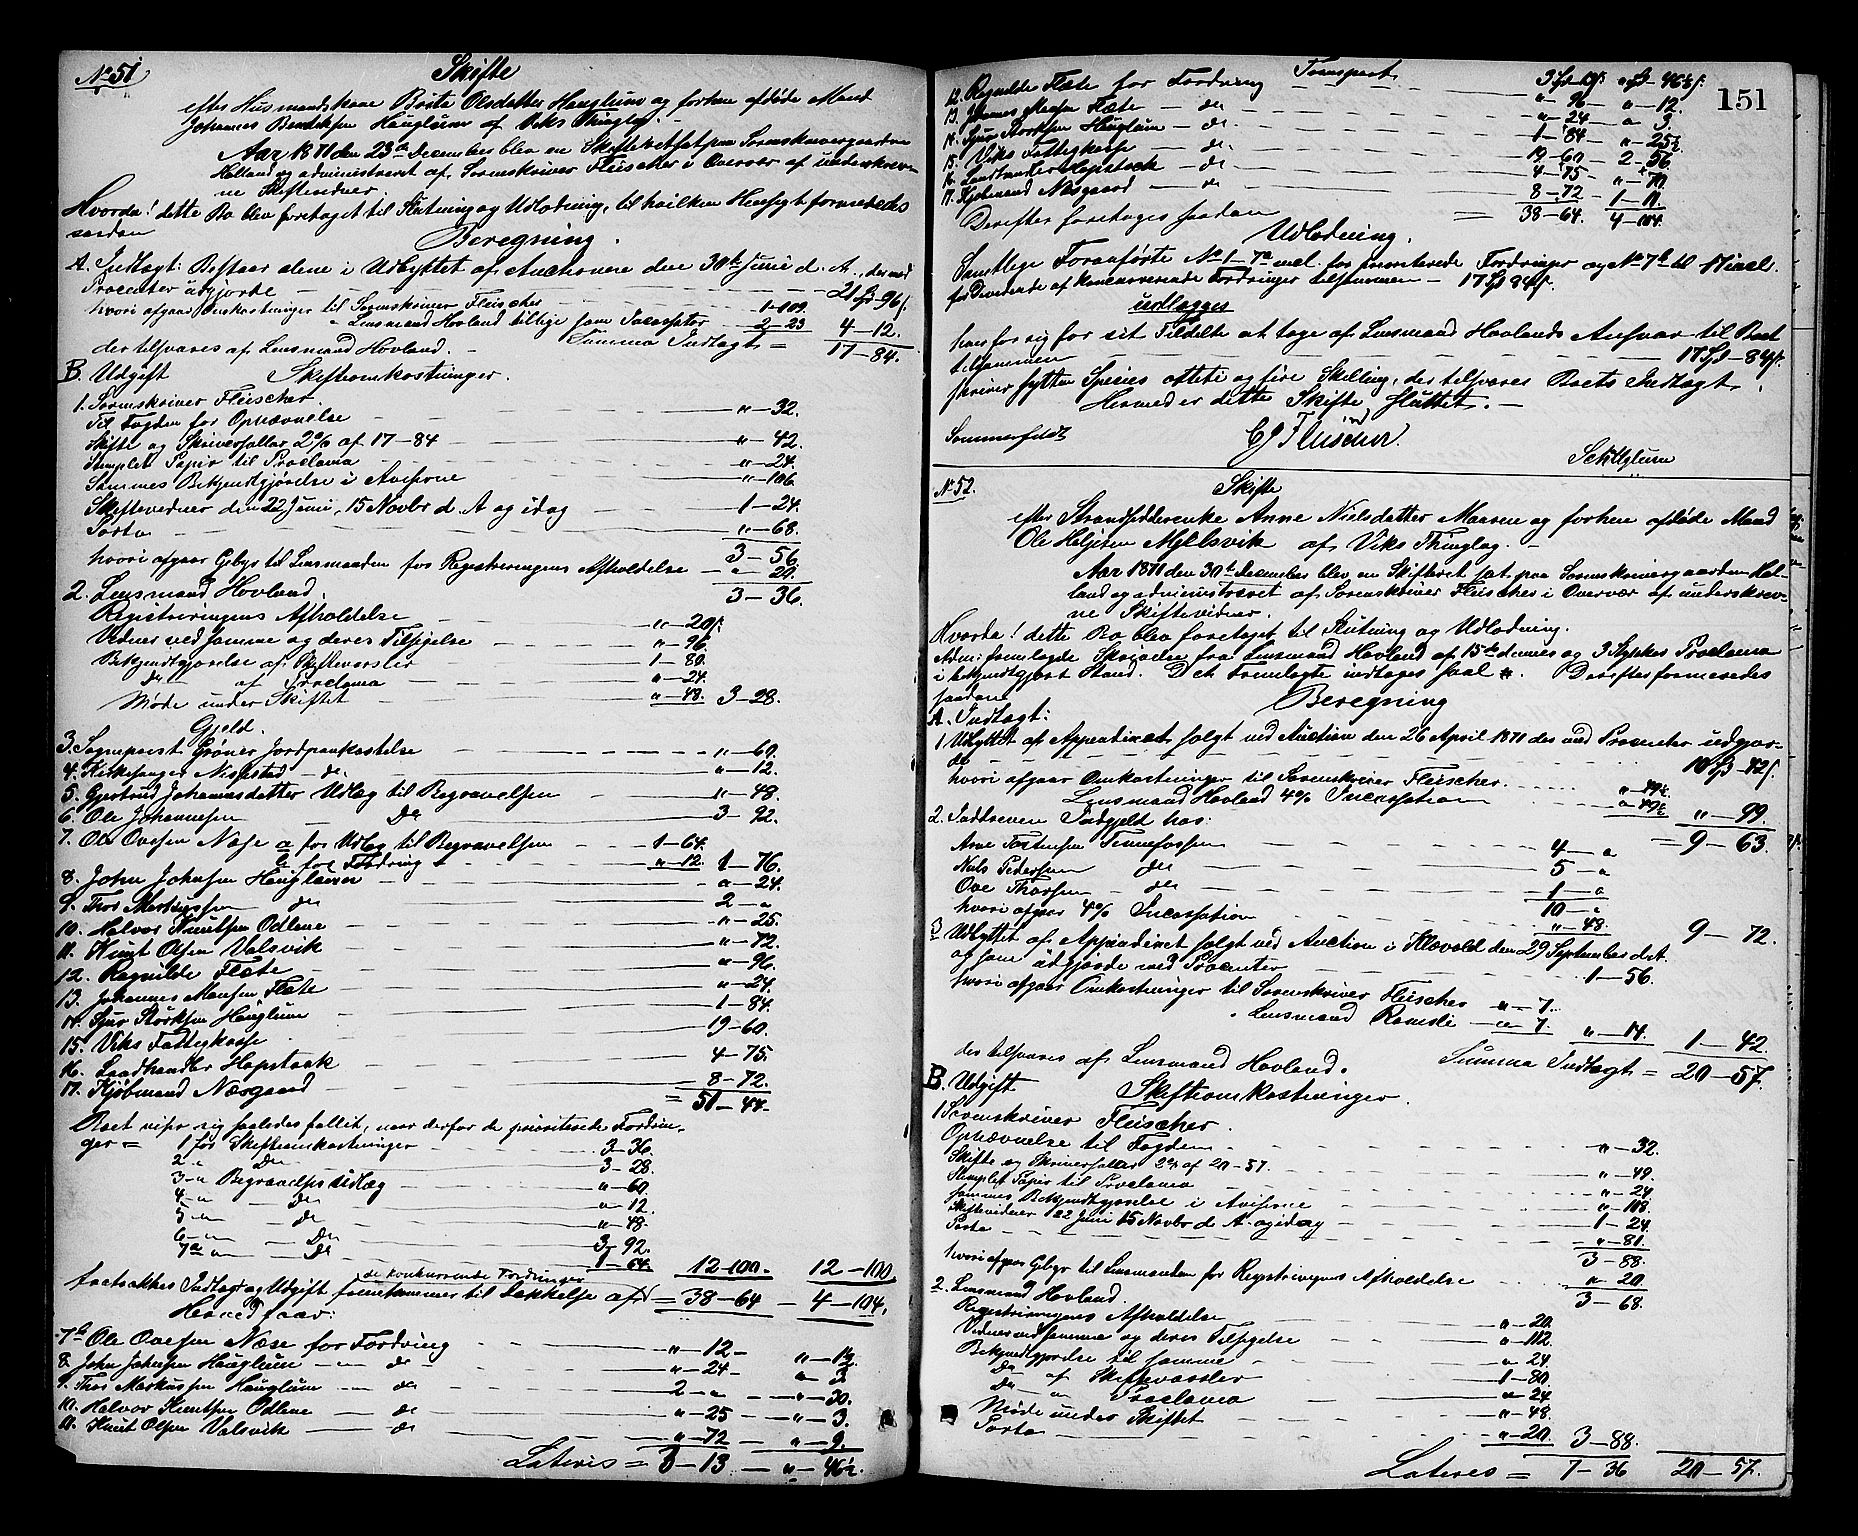 No 51 Skifte
efter Husmandskone Brita Olsdatter Hauglum og forhen afdøde Mand
Johannes Bendiksen Hauglum af Viks Thinglag. —
Aar 1871 den 23de December blev en Skifteret sat paa Sorenskrivergaarden
Helland og administreret af Sorenskriver Fleischer i Overvær af underskrev-
ne Skiftevidner.
Hvorda! dette Bo blev foretaget til Slutning og Udlodning, til hvilken Hensigt formeredes
saadan
Beregning.
A. Indtægt: Bestaar alene i Udbyttet af Auctionen den 30te Juni d. A., der med
Procenter udgjorde — 21 Spd - 96 s.
hvori afgaar Omkostninger til Sorenskriver Fleischer 1-109.
" Lensmand Hovland tillige som Incassator 2-23 4-12.
der tilsvares af Lensmand Hovland. — Summa Indtægt = 17-84.
B. Udgift Skifteomkostninger.
1. Sorenskriver Fleischer.
Til Fogden for Ophævnelse " — 32.
Skifte og Skriversallar 2% af 17-84 " — 42.
Stemplet Papir til Proclama " — 24.
Sammes Bekjendtgjørelse i Aviserne " — 106
Skiftevidner den 22 Juni, 15 Novbr d. A og idag 1 — 24.
Porto " — 68.
3 — 56
hvori afgaar Gebyr til Lensmanden for Registreringens Afholdelse " — 20.
3 — 36.
2. Lensmand Hovland.
Registreringens Afholdelse " — 20 s.
Vidner ved samme og deres Tilsigelse " — 96.
Bekjendtgjørelse af Skiftevarsler 1 — 80.
Do af Proclama " — 24.
Møde under Skiftet " — 48. 3 — 28.
Gjeld.
3. Sogneprest Grøner Jordpaakastelse " — 60.
4. Kirkesanger Nispestad — do " — 12.
5. Gjertrud Johannesdatter Udlæg til Begravelsen " — 48.
6. Ole Johannesen Do 3 — 92.
7. Ole Ovesen Næse a for Udlæg til Begravelsen 1 — 64.
b for Fordring " — 12. 1 — 76.
8. John Johnsen Hauglum " — 24.
9. Thor Markussen do 2 — "
10. Halvor Knutsen Odlene " — 25.
11. Knut Olsen Valsvik " — 72.
12. Ragnilde Flete " — 96.
13. Johannes Monsen Flete " — 24.
14. Sjur Størksen Hauglum 1 — 84.
15. Viks Fattigkasse 19 — 60.
16. Landhandler Hopstock 4 — 75.
17. Kjøbmand Næsgaard 8 — 72.
= 51 — 44.
Boet viser sig saaledes fallit, naar derfor de prioriterede Fordrin-
ger = 1 for Skifteomkostninger 3 — 36.
2 " Do 3 — 28.
3 " Begravelses Udlæg " — 60.
4 " Do " — 12.
5 " Do " — 48.
6 " Do 3 — 92.
7a " Do 1 — 64. 12 — 100. 12 — 100
fratrækkes Indtægt og Udgift fremkommer til Dækkelse af de konkurrerende Fordringer = 38 — 64 — 4 — 104.
Herved faar:
7b Ole Ovesen Næse for Fordring " — 12 —
8. John Johnsen Hauglum — do " — 24 — " — 3.
9. Thor Markussen Hauglum — do 2 — " — " — 30.
10. Halvor Knutsen Odlene — do " — 25 — " — 3.
11. Knut Olsen Valsvik — do " — 72 — " — 9.
Lateris = 3 — 13 — " — 46½.
151
Transport 3 Spd 13 s. " Spd 46½ s.
12. Ragnilde Flete for Fordring " — 96 — " — 12.
13. Johannes Monsen Flete — do " — 24 — " 3
14. Sjur Størksen Hauglum — do 1 — 84 — " — 25½
15. Viks Fattigkasse — do 19 — 60 — 2 — 56
16. Landhandler Hopstock — do 4 — 75 — " — 70.
17. Kjøbmand Næsgaard — do 8 — 72 — 1 — 11.
Derefter foretoges saadan = 38 — 64. 4 — 104.
Udlodning.
Samtlige Foranførte No 1 — 7a incl. for prioriterede Fordringer og No 7b til 17 incl.
for Dividende af konkurrerende Fordringer tilsammen — 17 Spd 84 s.
udlægges
hver for sig for sit Tildelte at tage af Lensmand Hovlands Ansvar til Boet
tilsammen — 17 Spd — 84 s.
skriver sytten Species otteti og fire Skilling, der tilsvarer Boets Indtægt.
Hermed er dette Skifte sluttet. —
Sommerfeldt CJ Fleischer
No 52. Skifte
efter Strandsidderenke Anne Nielsdatter Maaren og forhen afdøde Mand
Ole Heljesen Mellsvik af Viks Thinglag. —
Aar 1871 den 30te December blev en Skifteret sat paa Sorenskrivergaarden Hel-
land og administreret af Sorenskriver Fleischer i Overvær af underskrev-
ne Skiftevidner.
Hvorda! dette Bo blev foretaget til Slutning og Udlodning.
Adm: fremlagde Skrivelse fra Lensmand Hovland af 15de dennes og 3 Stykker Proclama
i bekjendtgjort Stand. Det Fremlagte indtages saal ". Derefter formeredes
saadan
Beregning
A. Indtægt:
1 Udbyttet af Appendixet solgt ved Auction den 26 April 1871 der med Procenter udgjor-
de 10 Spd — 42 s.
hvori afgaar Omkostninger til Sorenskriver Fleischer. " — 49½
Lensmand Hovland 4% Incassation " — 49½ " — 99.
= 9 — 63.
2. Inddreven Indgjeld hos:
Arne Tostensen Tennefossen 4 — "
Niels Pedersen do 5 — "
Ove Thorsen — do 1 — "
10 — "
hvori afgaar 4% Incassation " — 48. 9 — 72.
3 Udbyttet af Appendixet solgt ved Auction i Klævold den 29 September d. A.
og som udgjorde med Procenter 1 — 56.
hvori afgaar Omkostninger til Sorenskriver Fleischer " — 7.
" Lensmand Romsli — " — 7. " — 14. 1 — 42.
der tilsvares af Lensmand Hovland. Summa Indtægt = 20 — 57.
B. Udgift Skifteomkostninger.
1 Sorenskriver Fleischer.
Ophævnelse til Fogden " — 32.
Skifte og Skriversallar 2% af 20-57. " — 49.
Stemplet Papir til Proclama " — 24
Sammes Bekjendtgjørelse i Aviserne " — 108.
Skiftevidner 22 Juni 15 Novbr d. A. og idag 1 — 24.
Porto " — 81.
3 — 88.
hvori afgaar Gebyr til Lensmanden for Registreringens Afholdelse " — 20
3 — 68.
2. Lensmand Hovland.
Registreringens Afholdelse " — 20.
Vidner ved samme og deres Tilsigelse " — 112.
Bekjendtgjørelse til samme " — 24.
Do af Skiftevarsler 1 — 80.
Do " Proclama " — 24
Møde under Skiftet " — 48.
Porto " — 20 3 — 88.
Lateris = 7 — 36 20 — 57.